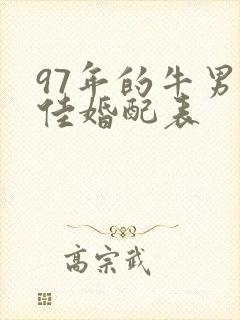 97年的牛男
佳婚配表
高宗武